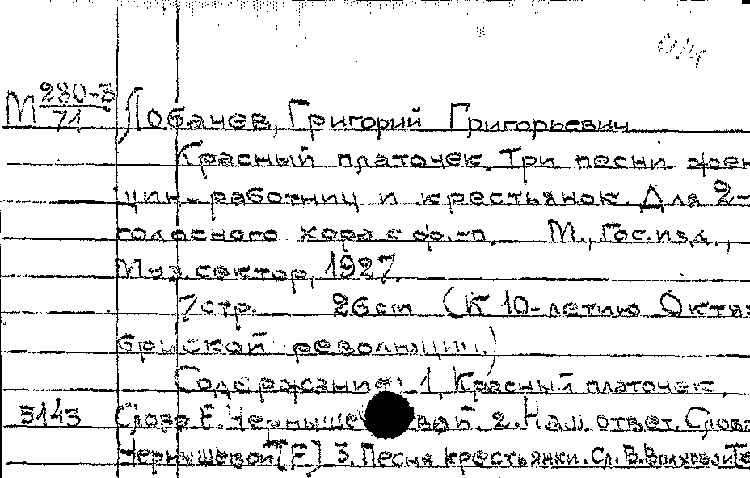 М 280-3/71 Лобачев, Григорий Григорьевич
Красный платочек. Три песни жен-
щин-работниц и крестьянок. Для 2-
голосного хора с ф.-п. М., Гос.изд.,
Муз.сектор, 1927.
7стр. 26cm (К 10-летию Октя-
брьской революции.)
Содержание: 1. Красный платочек.
5143 Слова Е.Чернышевой. 2. Наш ответ. Слова
Чернышевой [Е] 3. Песня крестьянки. Сл. В.Волховой